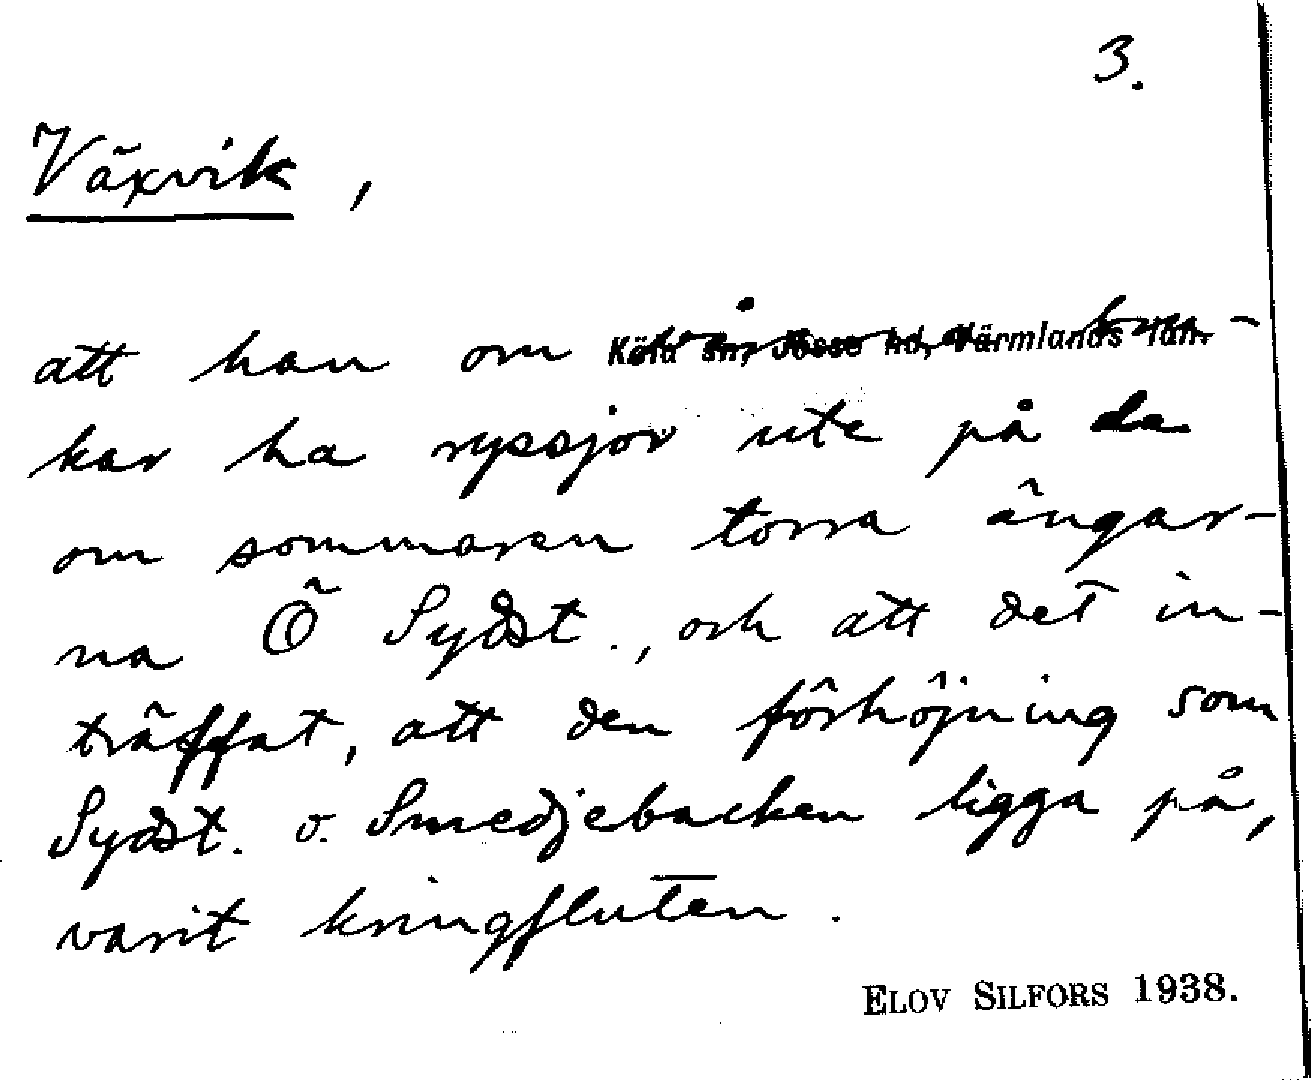 3.
Växvik,
att han om våren bru-
Köla sn, Jösse hd, Värmlands län.
kar ha ryssjor ute på de
om sommaren torra ängar-
na Ö Sydst., och att det in-
träffat, att den förhöjning som
Sydst. o. Smedjebacken ligga på,
varit kringfluten.
ELOV SILFORS 1938.